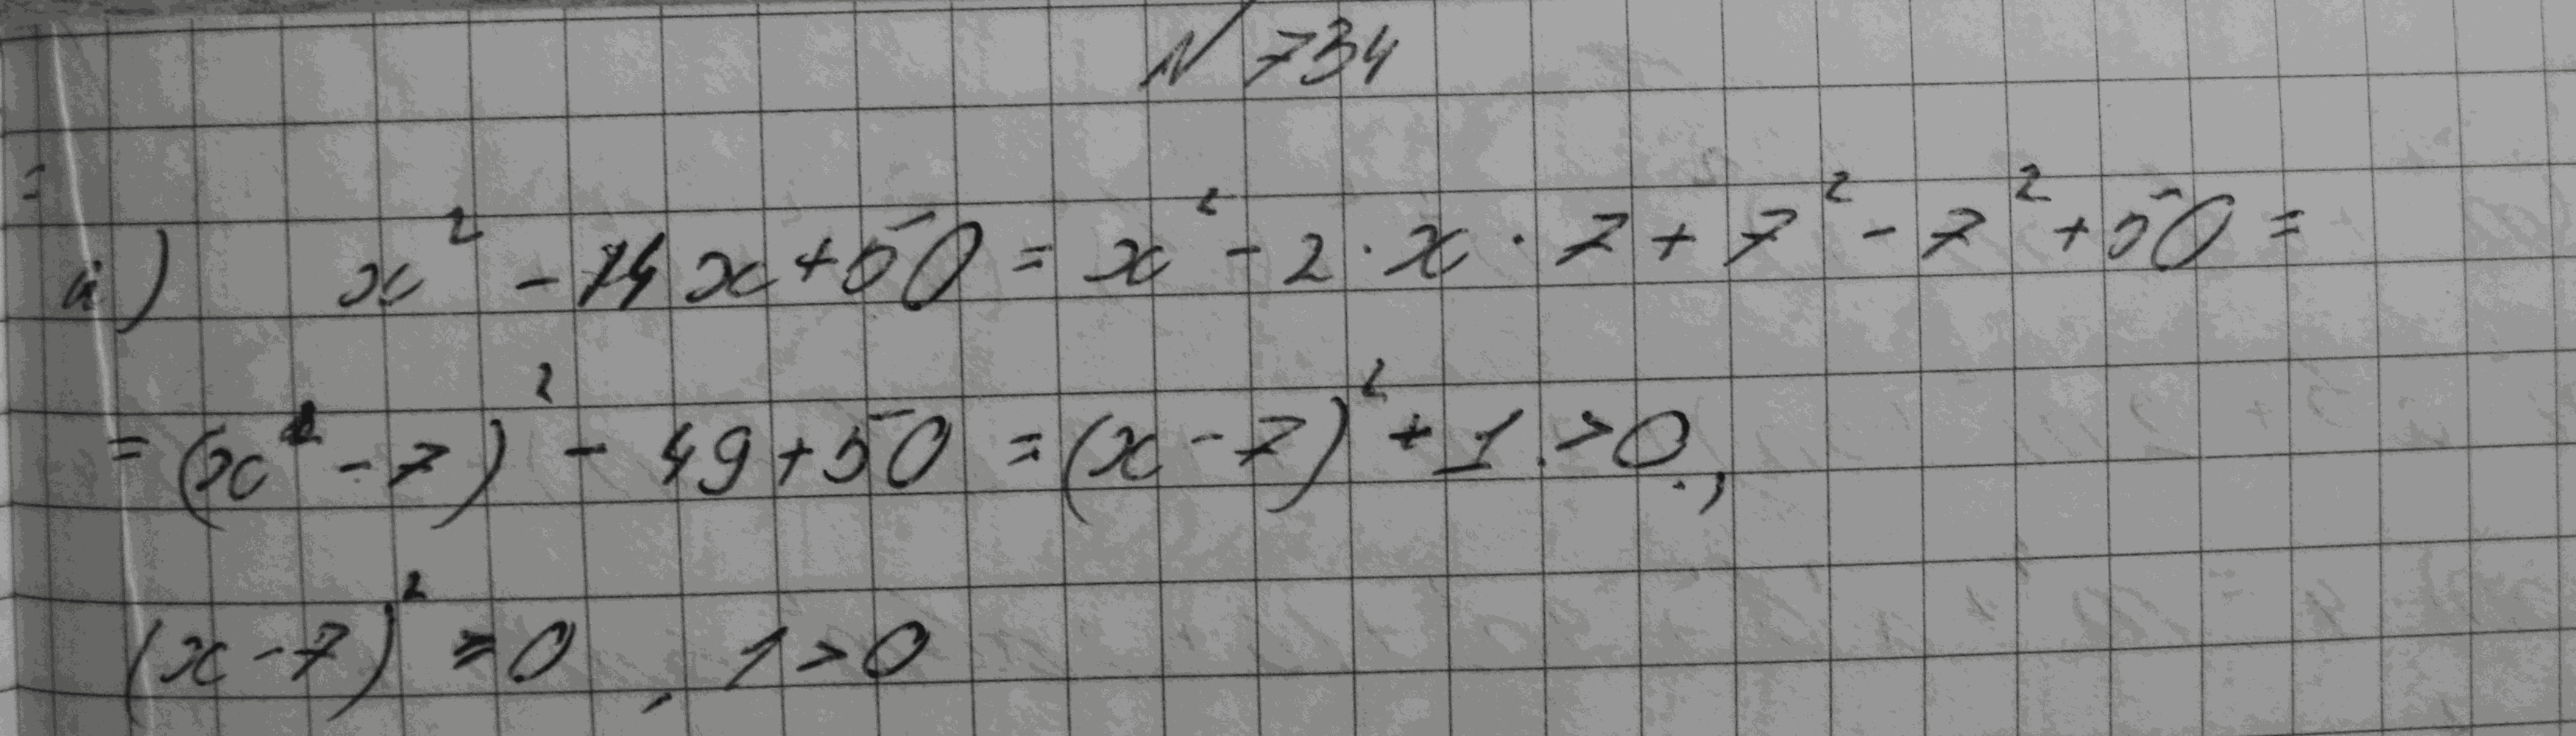 N 734
=
а) x² - 14x + 50 = x² - 2 · x · 7 + 7² - 7² + 50 =
= (x - 7)² - 49 + 50 = (x - 7)² + 1 > 0,
(x - 7)² ≥ 0, 1 > 0